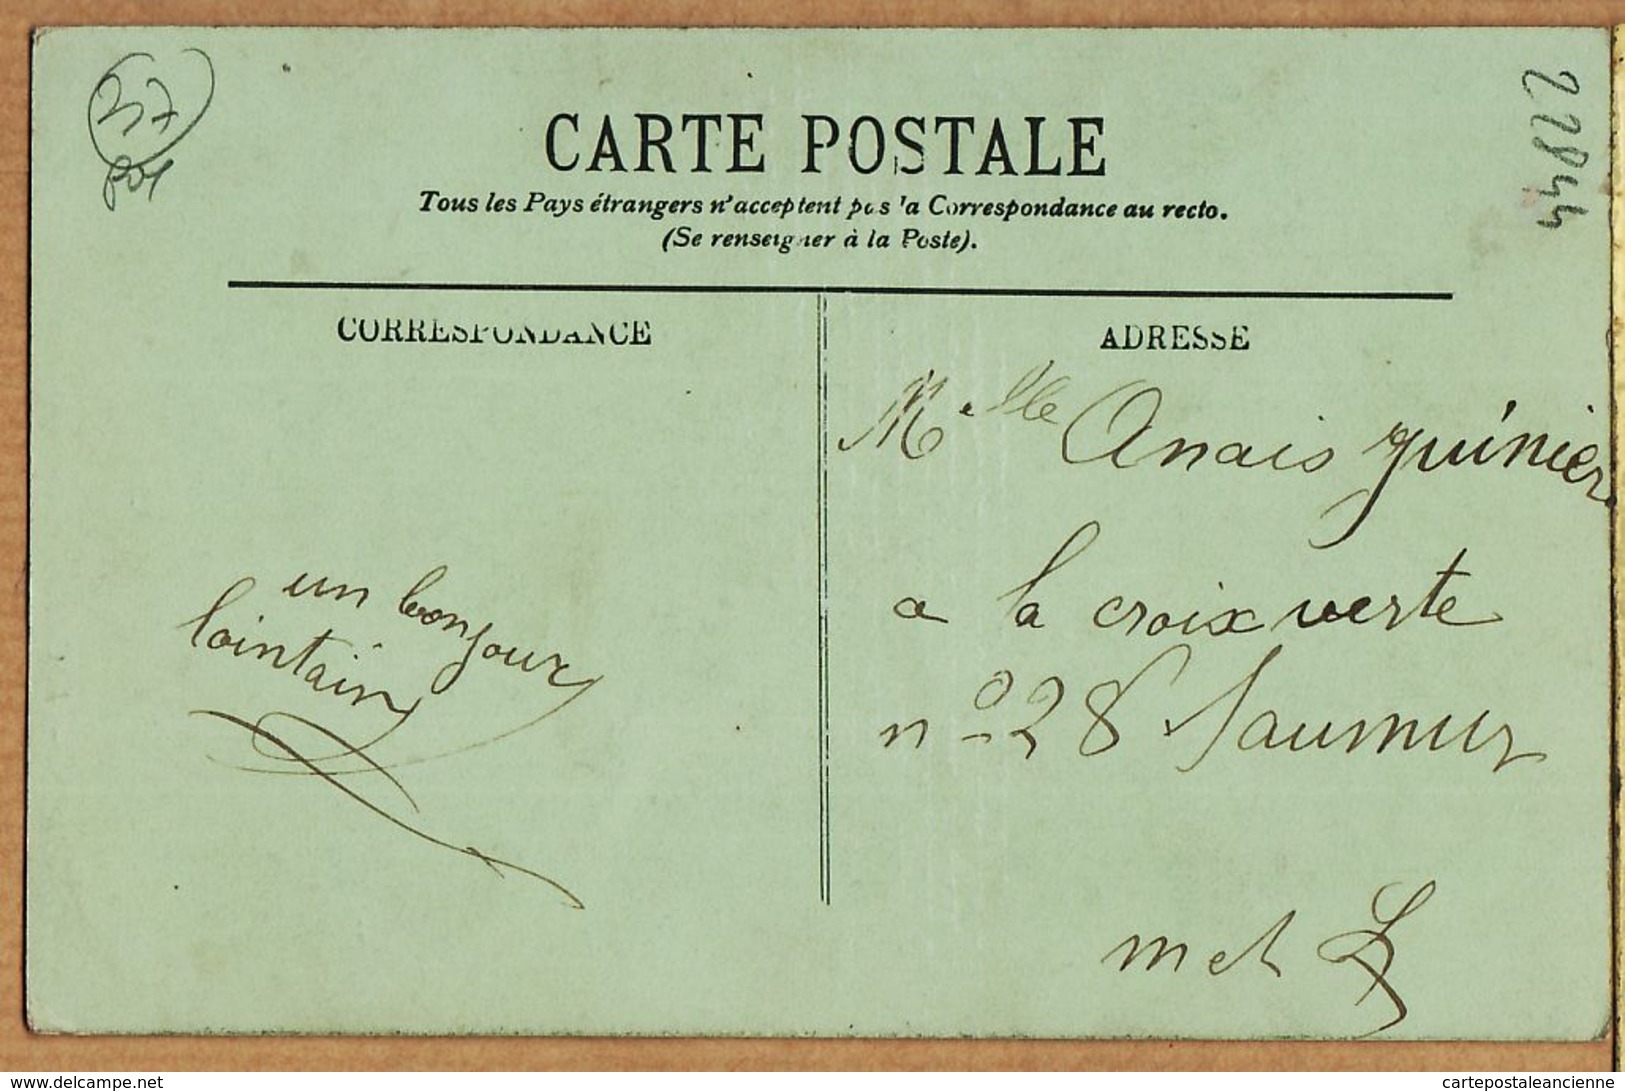 37
22844
CARTE POSTALE
Tous les Pays étrangers n'acceptent pas la Correspondance au recto.
(Se renseigner à la Poste).
CORRESPONDANCE
un bonjour
lointain
ADRESSE
Mlle Anais guinier
a la croix verte
nº 28 Saumur
m et L
www.delcampe.net
cartepostaleancienne